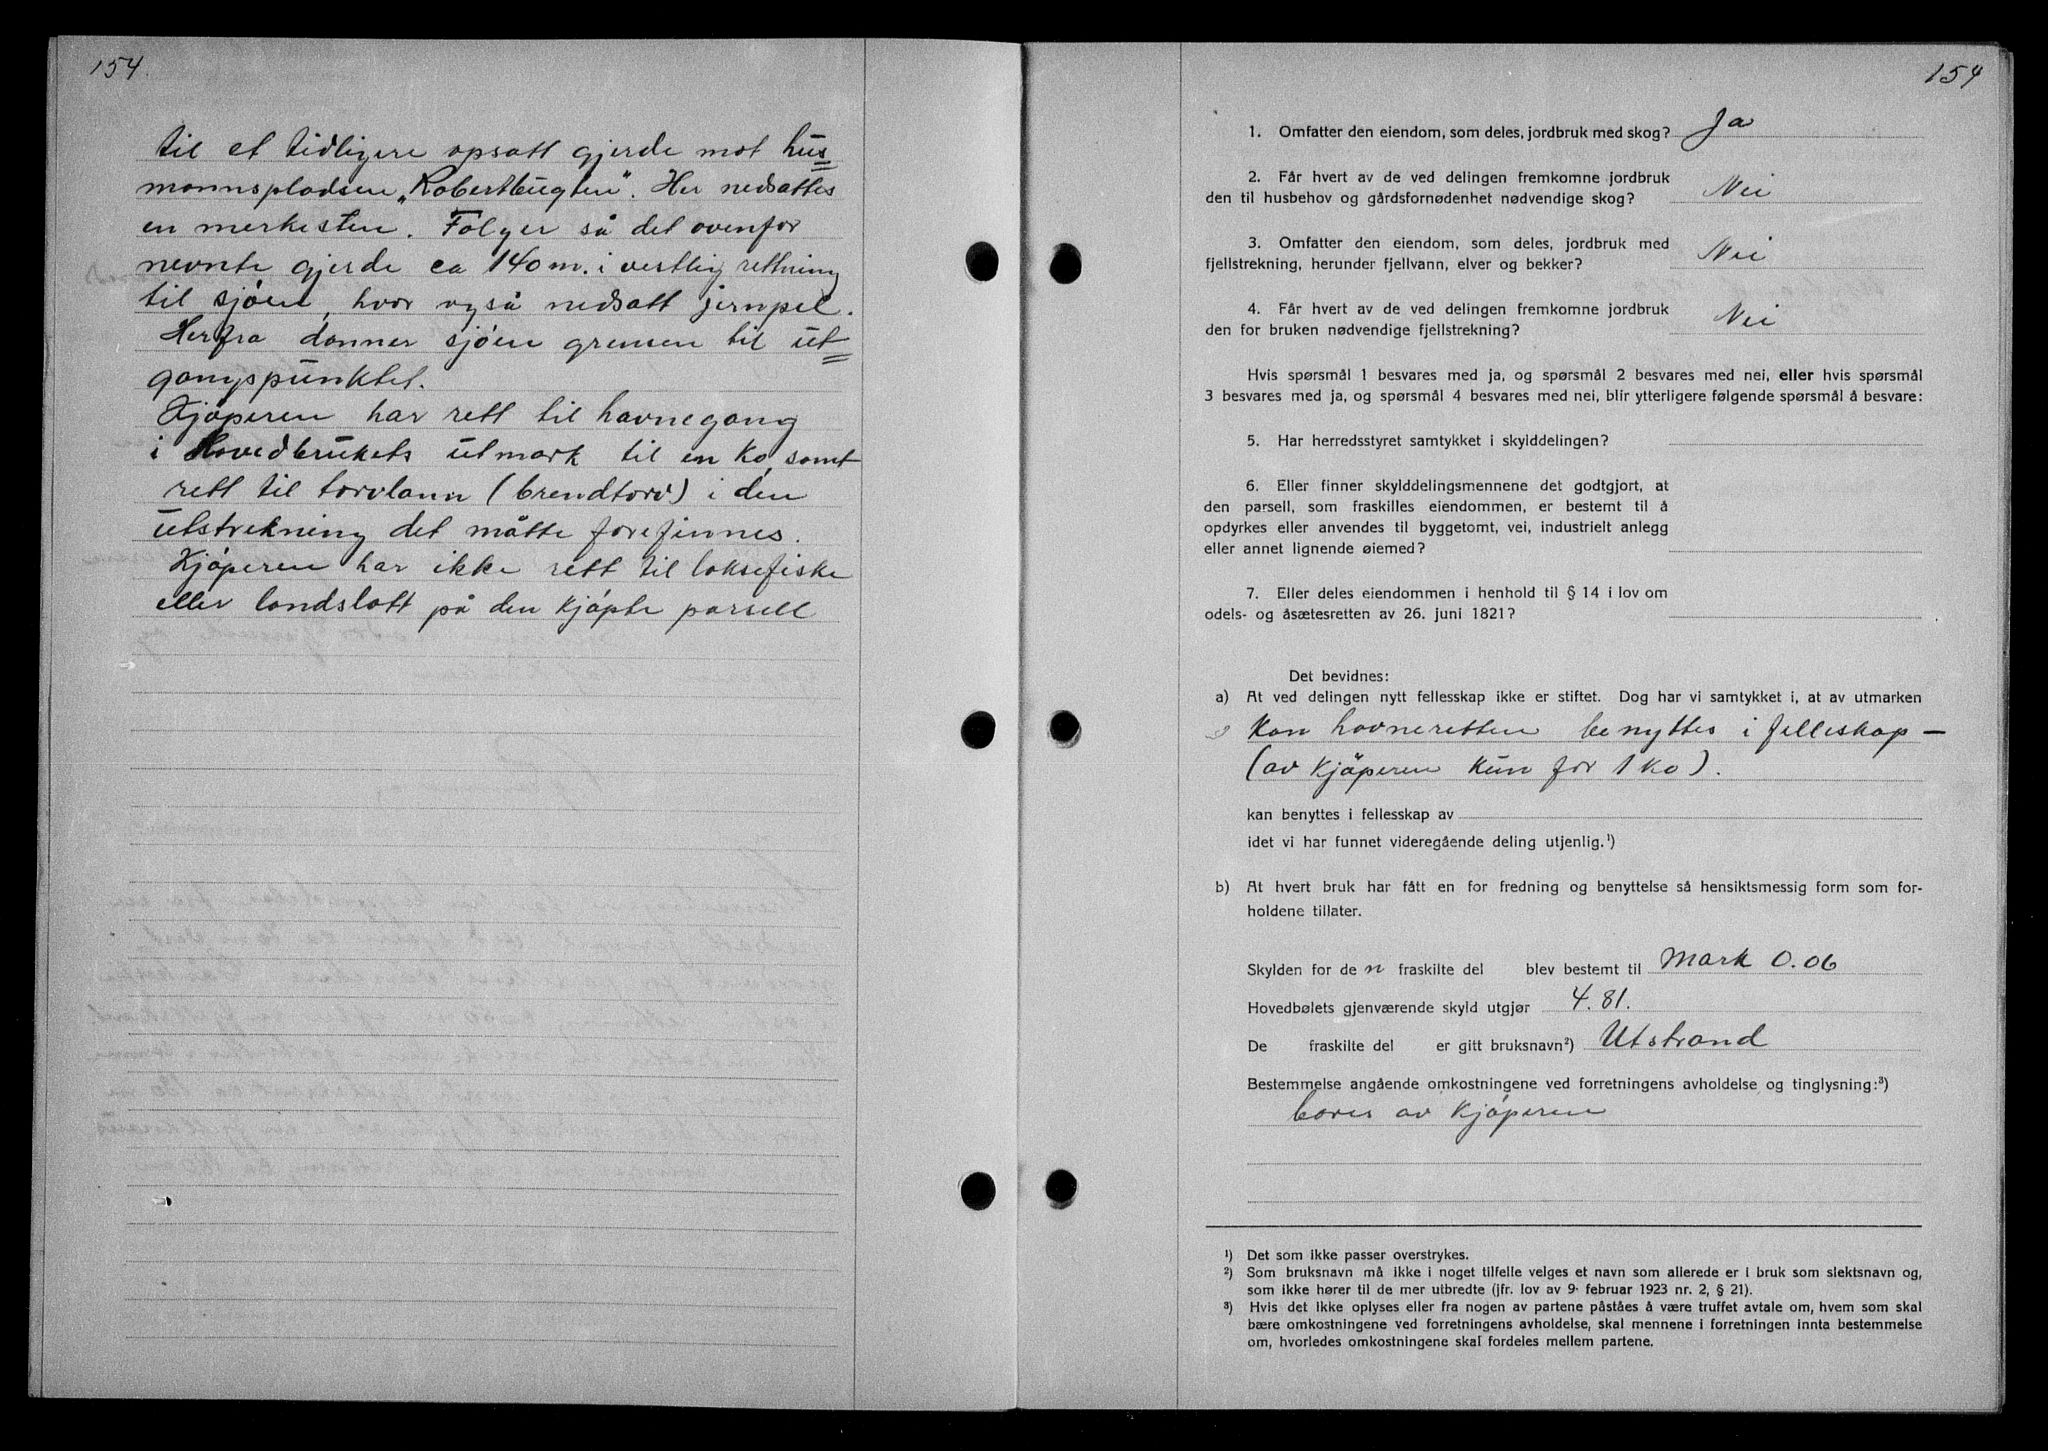 154.
til et tidligere opsatt gjerde mot hus=
mannspladsen „Robertbugten". Her nedsattes
en merkesten. Følger så det ovenfor
nevnte gjerde ca 140 m. i vestlig rettning
til sjøen, hvor også nedsatt jernpel.
Herfra danner sjøen grensen til ut=
gangspunktet.
Kjøperen har rett til havnegang
i Hovedbrukets utmark til en ko, samt
rett til torvlann (brendtorv) i den
utstrekning det måtte forefinnes.
Kjøperen har ikke rett til laksefiske
eller landslott på den kjøpte parsell
154
1. Omfatter den eiendom, som deles, jordbruk med skog? Ja
2. Får hvert av de ved delingen fremkomne jordbruk
den til husbehov og gårdsfornødenhet nødvendige skog? Nei
3. Omfatter den eiendom, som deles, jordbruk med
fjellstrekning, herunder fjellvann, elver og bekker? Nei
4. Får hvert av de ved delingen fremkomne jordbruk
den for bruken nødvendige fjellstrekning? Nei
Hvis spørsmål 1 besvares med ja, og spørsmål 2 besvares med nei, eller hvis spørsmål
3 besvares med ja, og spørsmål 4 besvares med nei, blir ytterligere følgende spørsmål å besvare:
5. Har herredsstyret samtykket i skylddelingen?
6. Eller finner skylddelingsmennene det godtgjort, at
den parsell, som fraskilles eiendommen, er bestemt til å
opdyrkes eller anvendes til byggetomt, vei, industrielt anlegg
eller annet lignende øiemed?
7. Eller deles eiendommen i henhold til § 14 i lov om
odels- og åsætesretten av 26. juni 1821?
Det bevidnes:
a) At ved delingen nytt fellesskap ikke er stiftet. Dog har vi samtykket i, at av utmarken
kan havneretten benyttes i felleskap —
(av kjøperen kun for 1 ko).
kan benyttes i fellesskap av
idet vi har funnet videregående deling utjenlig.¹)
b) At hvert bruk har fått en for fredning og benyttelse så hensiktsmessig form som for-
holdene tillater.
Skylden for de n fraskilte del blev bestemt til mark 0.06
Hovedbølets gjenværende skyld utgjør 4.81.
De fraskilte del er gitt bruksnavn²) Utstrand
Bestemmelse angående omkostningene ved forretningens avholdelse og tinglysning:³)
bæres av kjøperen
¹) Det som ikke passer overstrykes.
²) Som bruksnavn må ikke i noget tilfelle velges et navn som allerede er i bruk som slektsnavn og,
som ikke hører til de mer utbredte (jfr. lov av 9. februar 1923 nr. 2, § 21).
³) Hvis det ikke oplyses eller fra nogen av partene påståes å være truffet avtale om, hvem som skal
bære omkostningene ved forretningens avholdelse, skal mennene i forretningen innta bestemmelse
om, hvorledes omkostningene skal fordeles mellem partene.